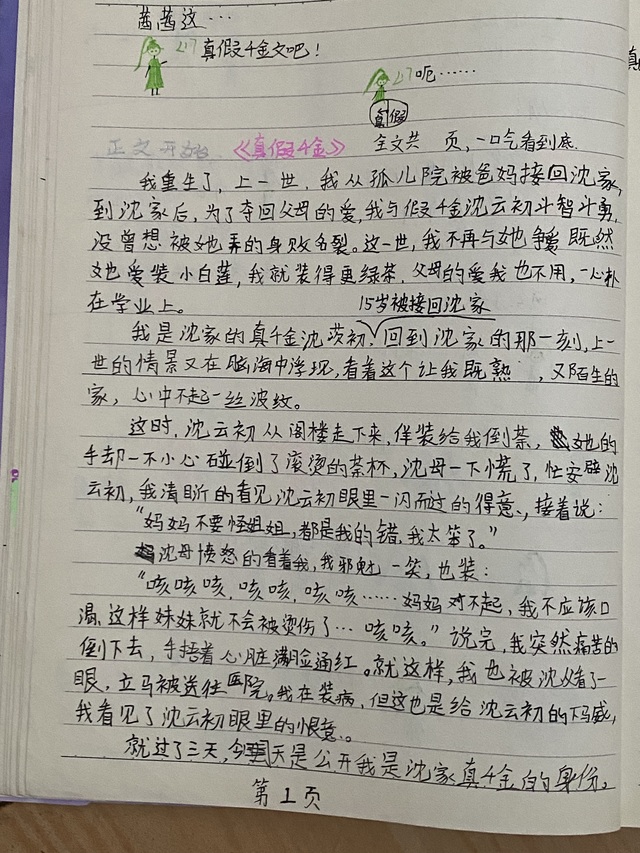 茜茜这…
真假千金文吧！
呃……
真假
正文开始 《真假千金》 全文共 页，一口气看到底.
我重生了，上一世，我从孤儿院被爸妈接回沈家，
到沈家后，为了夺回父母的爱，我与假千金沈云初斗智斗勇，
没曾想被她弄的身败名裂。这一世，我不再与她争爱 既然
她爱装小白莲，我就装得更绿茶，父母的爱我也不用，一心朴
在学业上。
15岁被接回沈家
我是沈家的真千金沈茨初，回到沈家的那一刻，上一
世的情景又在脑海中浮现，看着这个让我既熟 ，又陌生的
家，心中不起一丝波纹。
这时，沈云初从阁楼走下来，佯装给我倒茶，她的
手却一不小心碰倒了滚烫的茶杯，沈母一下慌了，忙安慰沈
云初，我清晰的看见沈云初眼里一闪而过的得意、，接着说：
“妈妈不要怪姐姐，都是我的错，我太笨了。”
沈母愤怒的看着我，我邪魅一笑，也装：
“咳咳咳，咳咳，咳咳……妈妈对不起，我不应该口
渴，这样妹妹就不会被烫伤了…咳咳。”说完，我突然痛苦的
倒下去，手捂着心脏满脸通红。就这样，我也被沈父看了一
眼，立马被送往医院。我在装病，但这也是给沈云初的下马威，
我看见了沈云初眼里的恨意、。
就过了三天，今天是公开我是沈家真千金的身份。
第1页